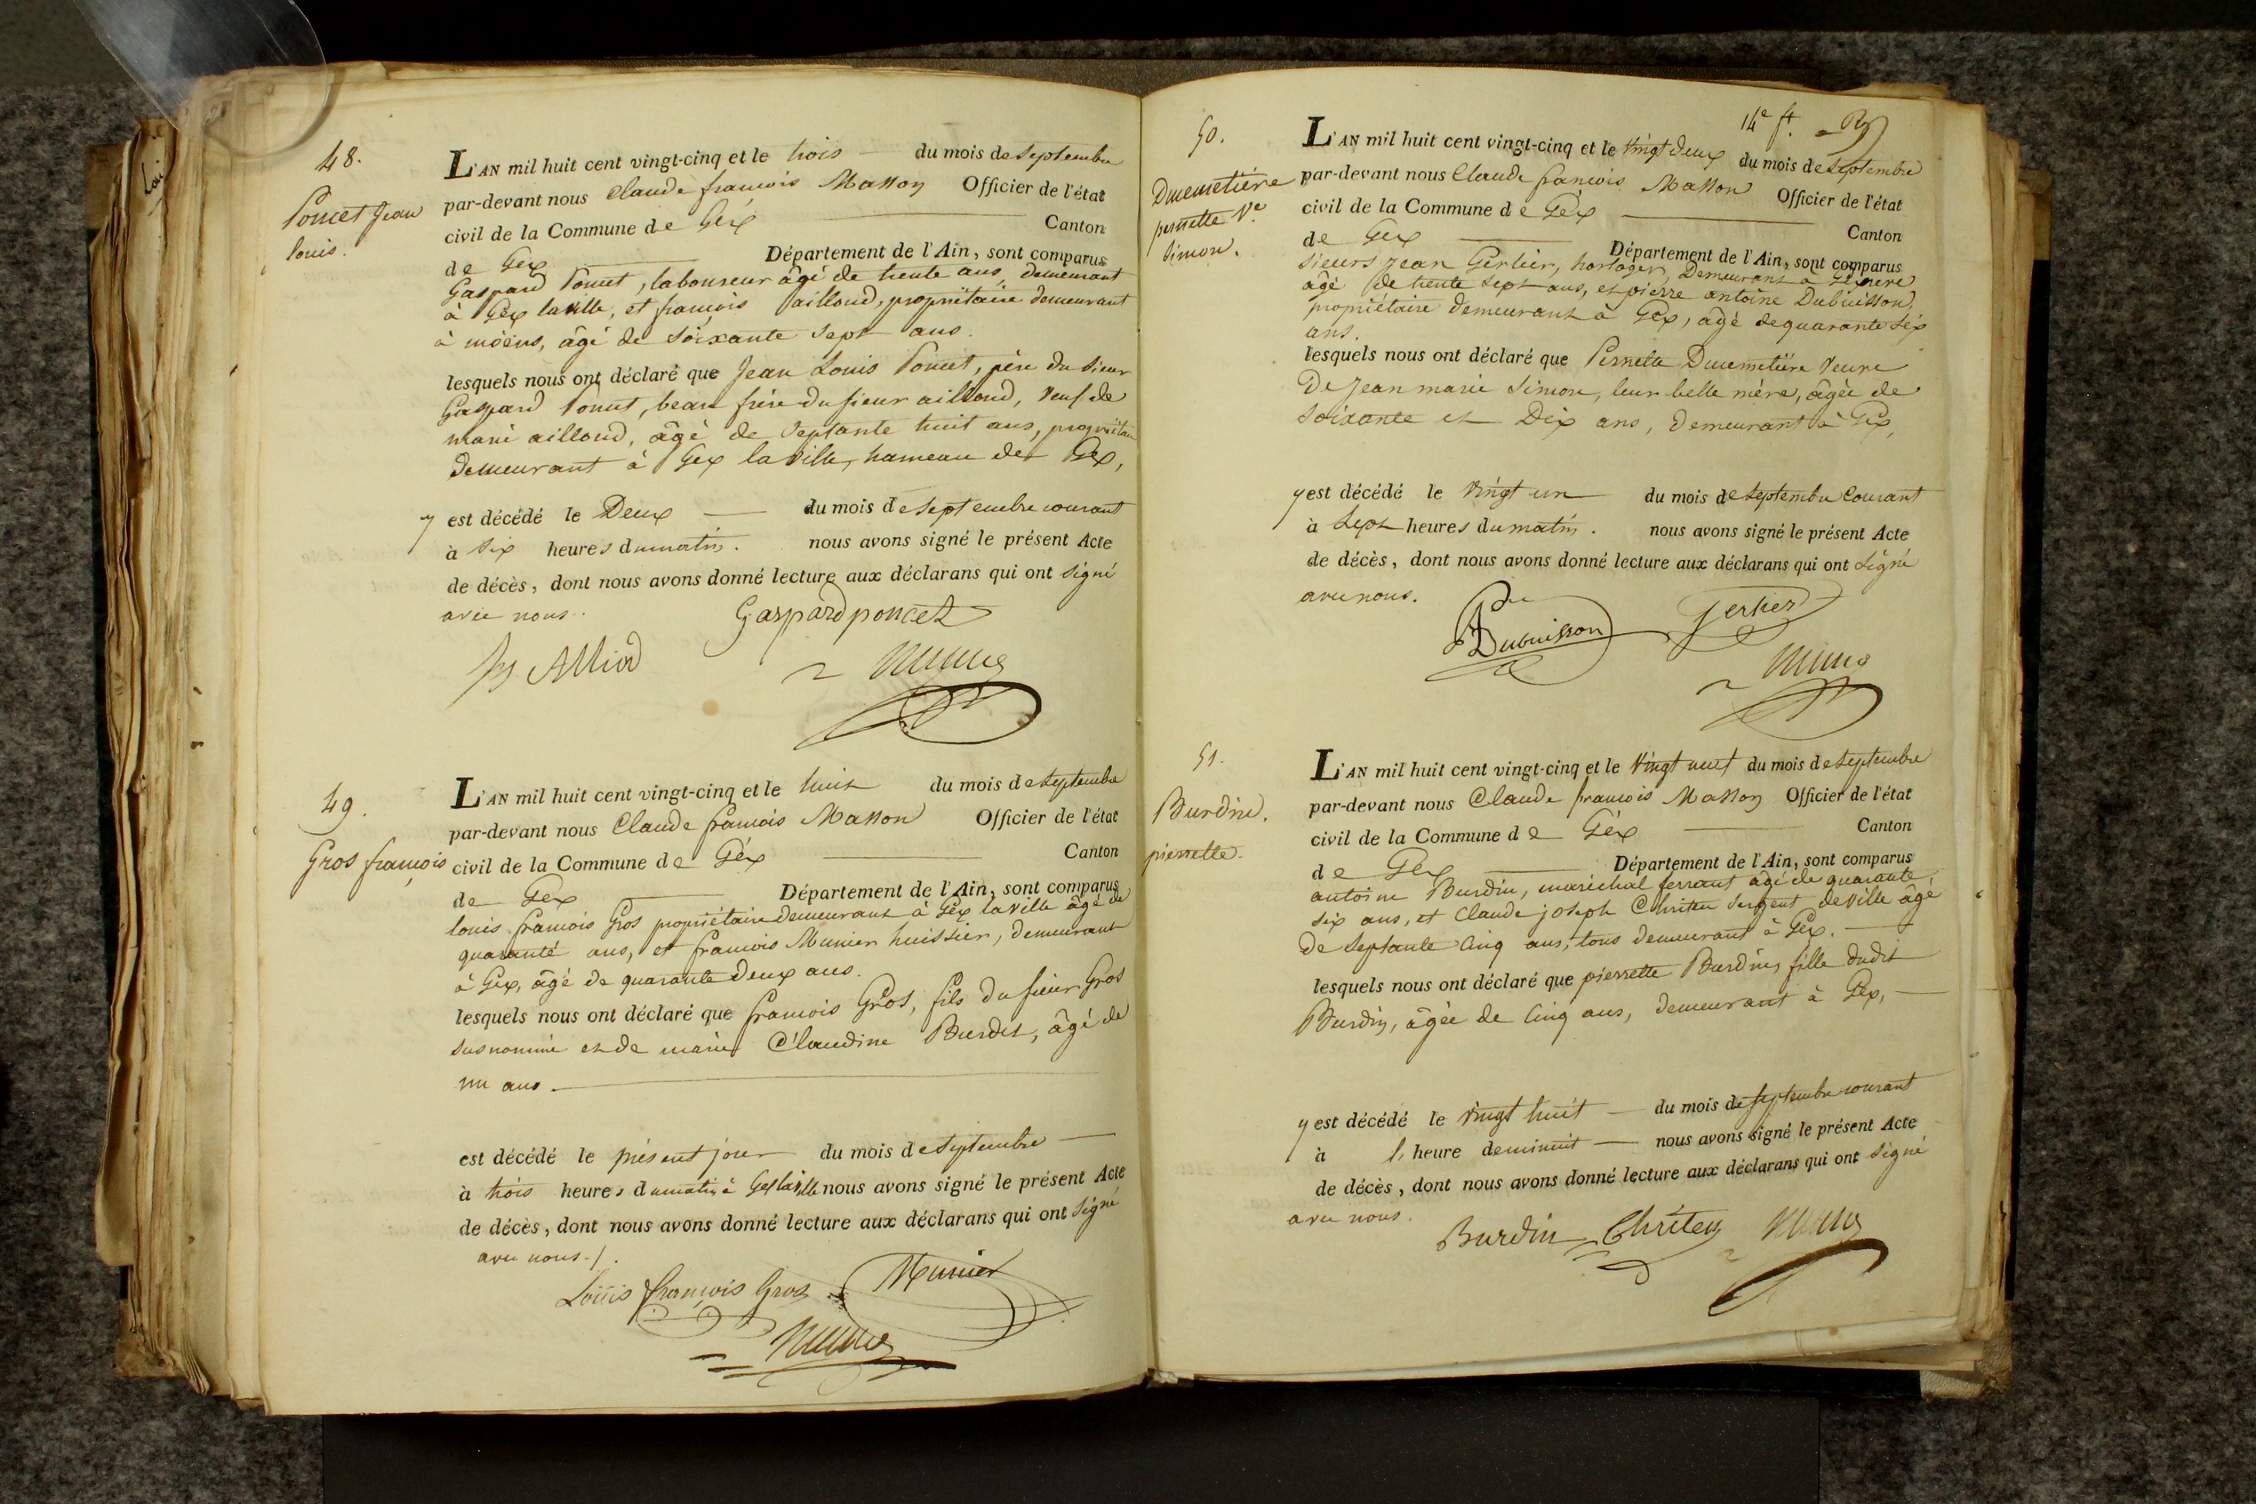 48.
Poncet Jean
louis.
L'AN mil huit cent vingt-cinq et le trois du mois de septembre
par-devant nous Claude françois Masson Officier de l'état
civil de la Commune de Géx Canton
de Gex Département de l'Ain, sont comparus
Gaspard Poncet, laboureur âgé de trente ans, demeurant
à Gex la ville, et françois ailloud, propriétaire demeurant
à moëns, âgé de soixante sept ans.
lesquels nous ont déclaré que Jean Louis Poncet, père du sieur
Gaspard Poncet, beau frère du sieur ailloud, veuf de
marie ailloud, âgé de septante huit ans, propriétaire
demeurant à Gex la ville, hameau de Gex,
y est décédé le Deux du mois de septembre courant
à six heures du matin. nous avons signé le présent Acte
de décès, dont nous avons donné lecture aux déclarans qui ont signé
avec nous.
Gaspard poncet
49.
Gros françois
L'AN mil huit cent vingt-cinq et le huit du mois de septembre
par-devant nous Claude françois Masson Officier de l'état
civil de la Commune de Géx Canton
de Gex Département de l'Ain, sont comparus
louis françois Gros propriétaire demeurant à Gex la ville âgé de
quarante ans, et françois Munier huissier, demeurant
à Gex, âgé de quarante deux ans.
lesquels nous ont déclaré que françois Gros, fils du sieur Gros
susnommé et de marie Claudine Burdet, âgé de
un ans
est décédé le présent jour du mois de septembre
à trois heures du matin à Gex la ville nous avons signé le présent Acte
de décès, dont nous avons donné lecture aux déclarans qui ont signé
avec nous./.
Louis françois Gros Munier
14e ft.
50.
Ducmetière
pernette Ve.
Simon.
L'AN mil huit cent vingt-cinq et le vingt deux du mois de septembre
par-devant nous Claude françois Masson Officier de l'état
civil de la Commune de Géx Canton
de Gex Département de l'Ain, sont comparus
sieurs Jean Gerlier, horloger, Demeurant à
âgé de trente sept ans, et pierre antoine Dubuisson,
propriétaire demeurant à Gex, âgé de quarante six
ans.
lesquels nous ont déclaré que Pernette Ducmetière veuve
De Jean marie Simon, leur belle mère, âgée de
soixante et Dix ans, demeurant à Gex,
y est décédé le vingt un du mois de septembre Courant
à sept heures du matin. nous avons signé le présent Acte
de décès, dont nous avons donné lecture aux déclarans qui ont signé
avec nous.
Dubuisson Gerlier
51.
Burdin.
pierrette.
L'AN mil huit cent vingt-cinq et le vingt neuf du mois de septembre
par-devant nous Claude françois Masson Officier de l'état
civil de la Commune de Géx Canton
de Gex Département de l'Ain, sont comparus
antoine Burdin, maréchal ferrant âgé de quarante
six ans, et Claude joseph Chriten sergent de ville âgé
de septante Cinq ans, tous demeurant à Gex.
lesquels nous ont déclaré que pierrette Burdin, fille dudit
Burdin, âgée de Cinq ans, demeurant à Gex,
y est décédé le vingt huit du mois de septembre courant
à l' heure de minuit nous avons signé le présent Acte
de décès, dont nous avons donné lecture aux déclarans qui ont signé
avec nous.
Burdin Chriten